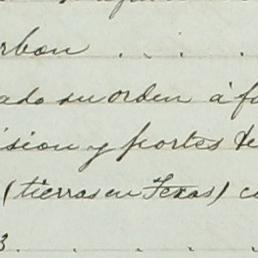 rbon . . . .
ado su orden á fa
ision y portes de
(tierras en Texas) co
3. . . . .